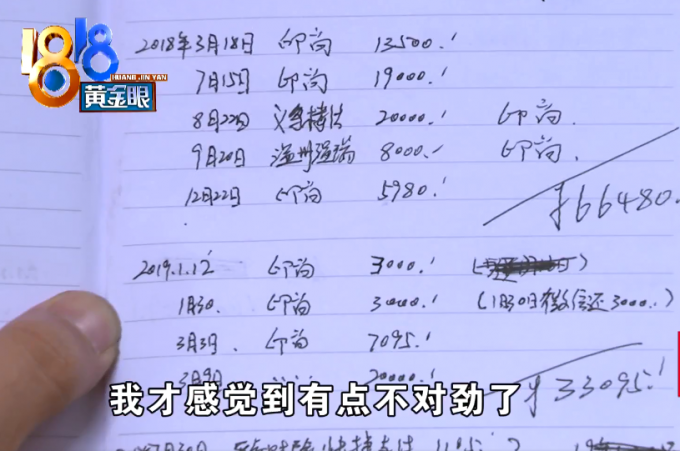 1818
HUANG JIN YAN
黄金眼
2018年3月18日 印尚 13500.-
7月15日 印尚 19000.-
8月22日 20000.- 印尚.
9月20日 温州温瑞 8000.- 印尚.
12月22日 印尚 5980.-
¥66480.
2019.1.12 印尚 3000.-
1月30. 印尚 3000.- (1月30日微信还3000.)
3月3日. 印尚 7095.-
3月9日 20000.-
¥33095.-
我才感觉到有点不对劲了